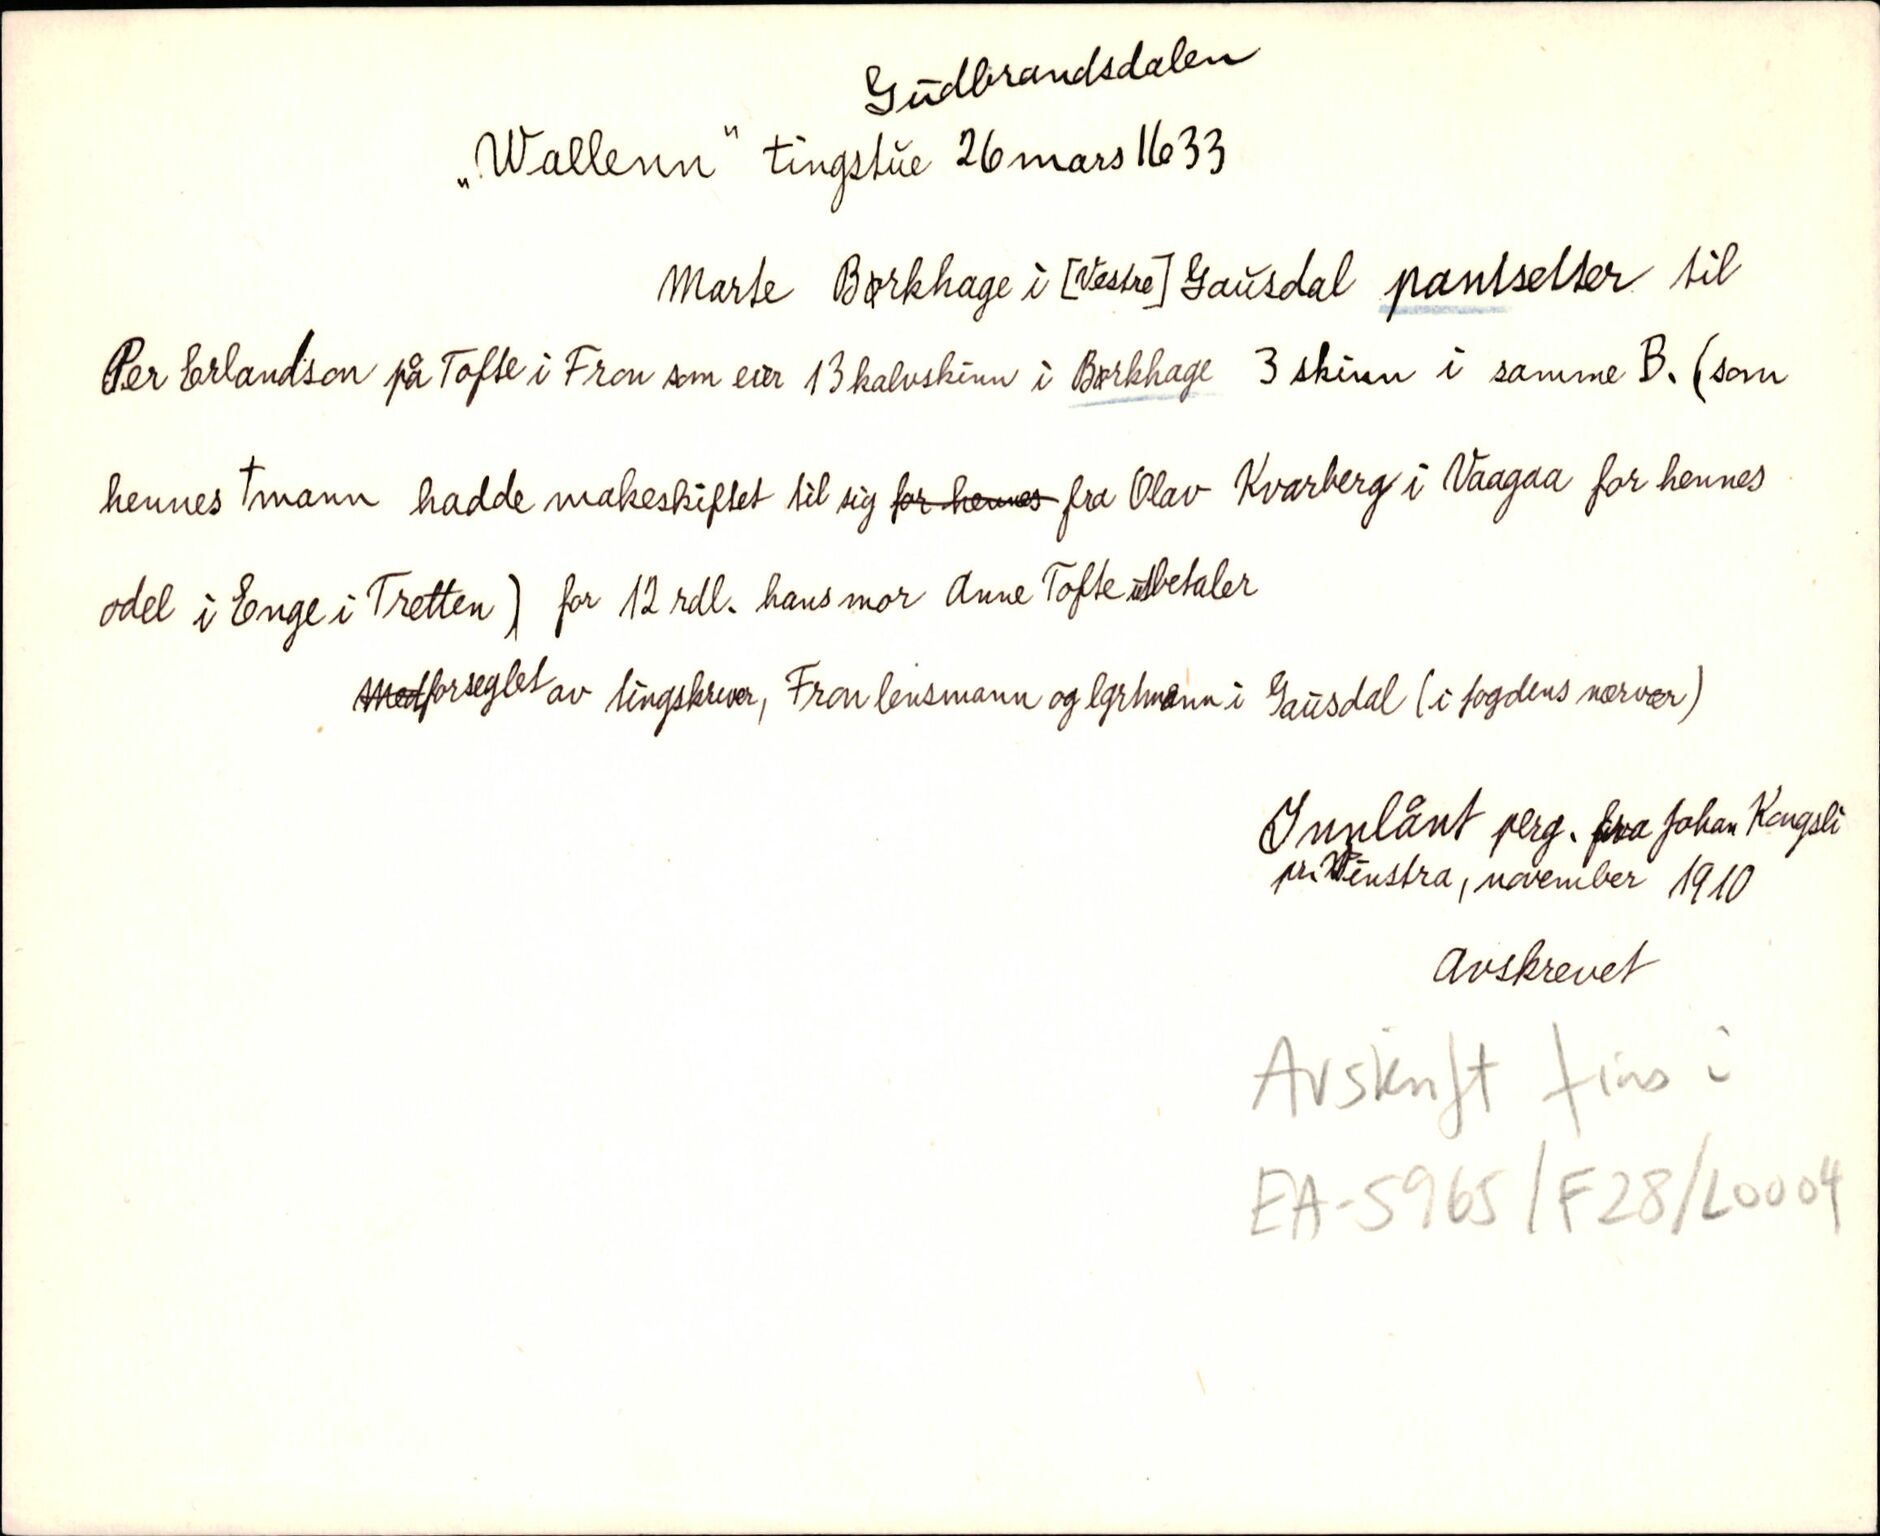 Gudbrandsdalen
„Wallenn" tingstue 26 mars 1633
Marte Børkhage i [Vestre] Gausdal pantsetter til
Per Erlandson på Tofte i Fron som eier 13 kalvskinn i Børkhage 3 skinn i samme B. (som
hennes †mann hadde makeskiftet til sig for hennes fra Olav Kvarberg i Vaagaa for hennes
odel i Enge i Tretten) for 12 rdl. hans mor Anne Tofte utbetaler
Medforseglet av tingskriver, Fron lensmann og lgrtmann i Gausdal (i fogdens nærvær)
Innlånt perg. fra Johan Kongsli
pr. Vinstra, november 1910
Avskrevet
Avskrift fins i
EA-5965/F28/L0004